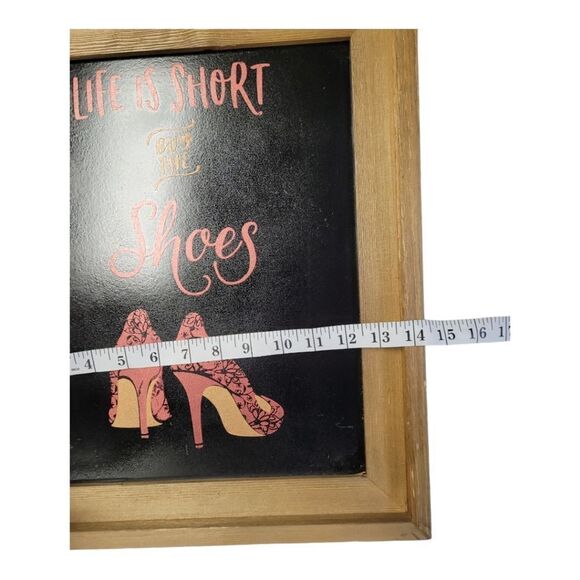 LIFE IS SHORT
BUY
THE
Shoes
4 5 6 7 8 9 10 11 12 13 14 15 16